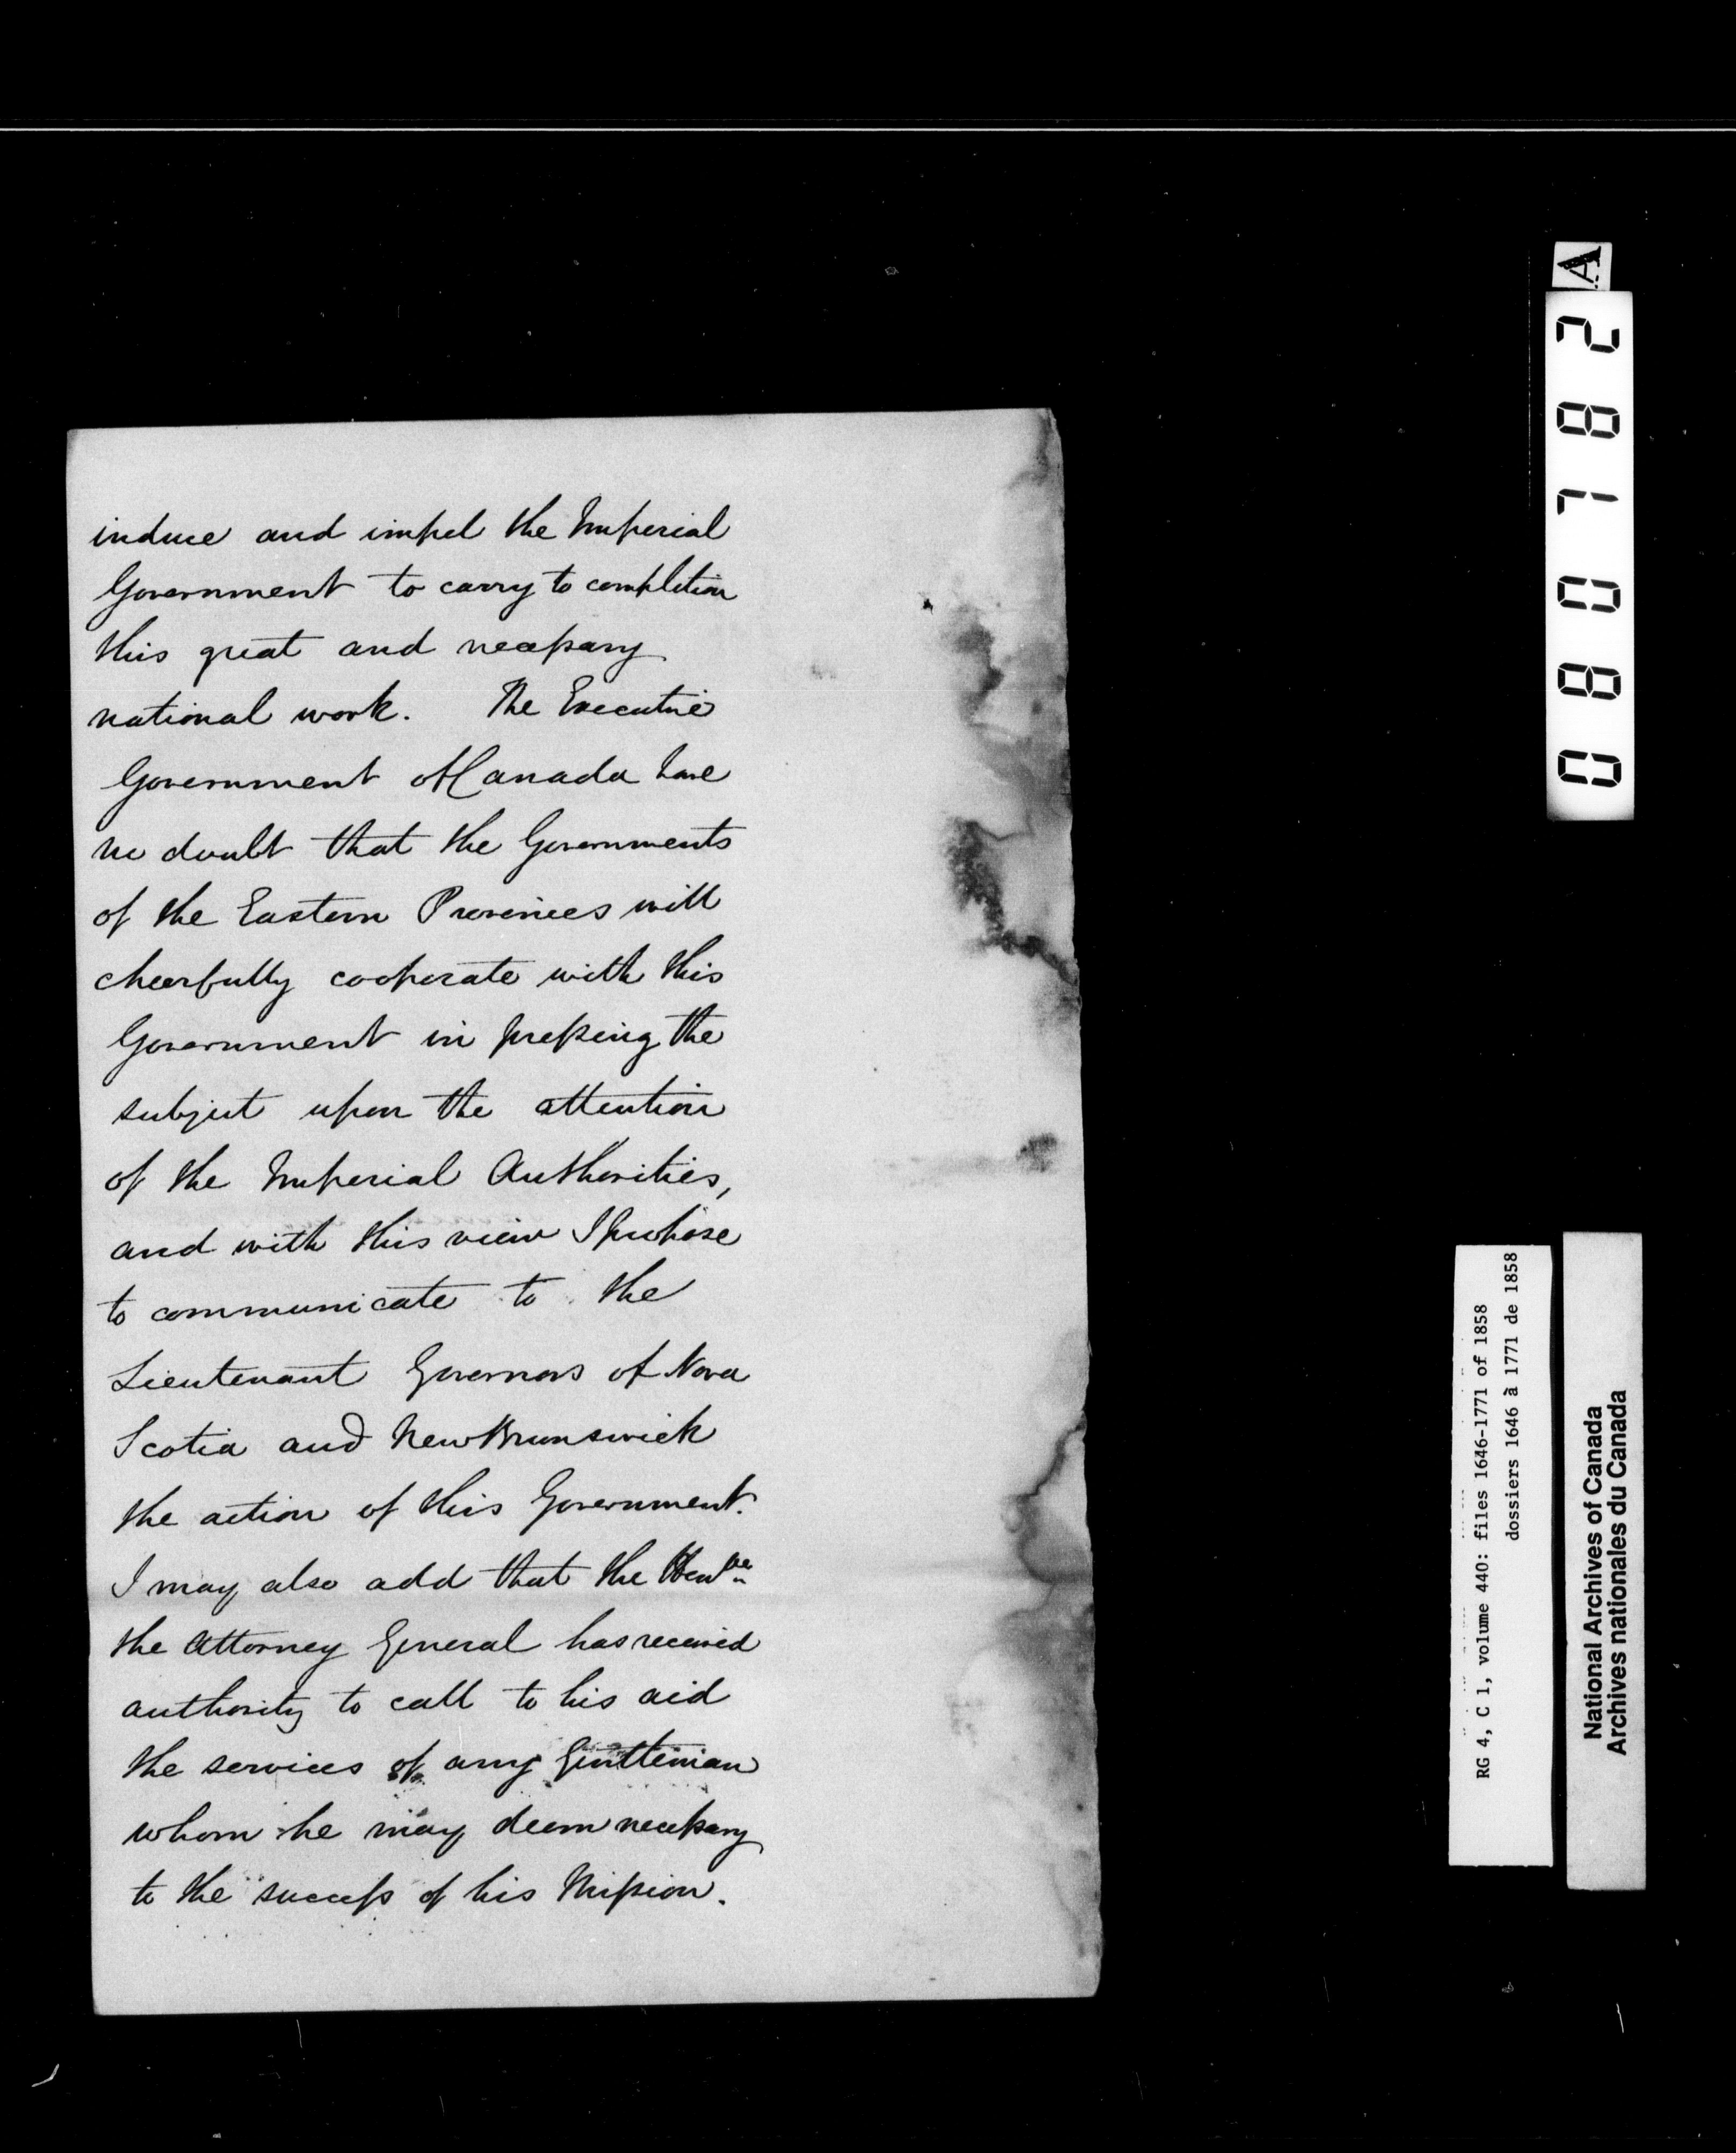 induce and impel the Imperial
Government to carry to completion
this great and necessary
national work. The Executive
Government of Canada have
no doubt that the Governments
of the Eastern Provinces will
cheerfully cooperate with this
Government in pressing the
subject upon the attention
of the Imperial Authorities,
and with this view I propose
to communicate to the
Lieutenant Governors of Nova
Scotia and New Brunswick
the action of this Government.
I may also add that the Honble
the Attorney General has received
authority to call to his aid
the services of any Gentleman
whom he may deem necessary
to the success of his Mission.
A
080782
RG 4, C 1, volume 440: files 1646-1771 of 1858
dossiers 1646 à 1771 de 1858
National Archives of Canada
Archives nationales du Canada